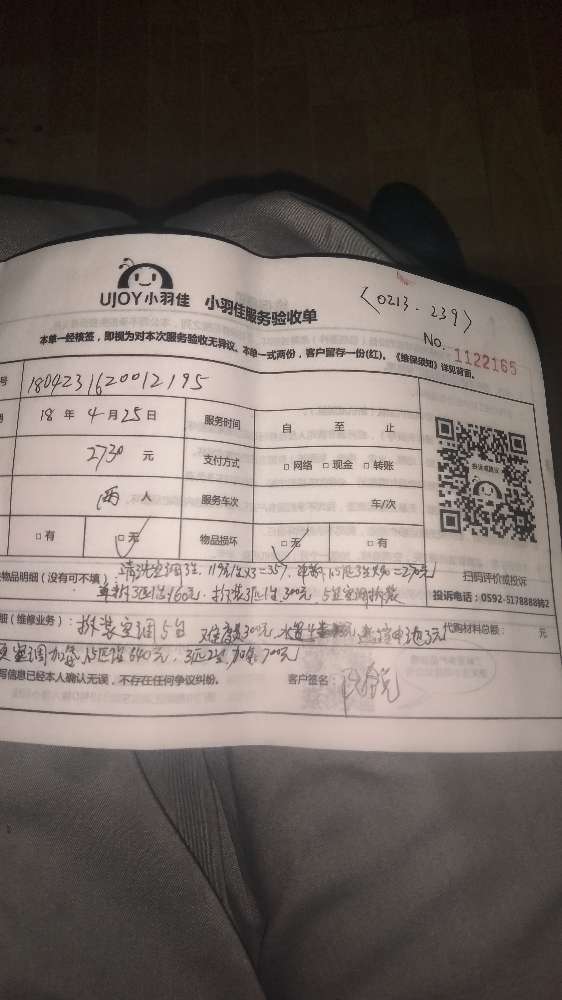 UJOY小羽佳 小羽佳服务验收单 〈0213-239〉
No. 1122165
本单一经核签，即视为对本次服务验收无异议。本单一式两份，客户留存一份(红)。《维保须知》详见背面。
号 18042316200012195
18 年 4 月 25 日 服务时间 自 至 止
2730 元 支付方式 □ 网络 □ 现金 □ 转账
两 人 服务车次 车/次
□ 有 □ 无 物品损坏 □ 无 □ 有
物品明细（没有可不填）：清洗空调3台，119元/台×3=357，单拆1.5匹3台×90=270元
单拆3匹1台160元，拆装3匹1台300元，5台空调拆装
扫码评价或投诉
投诉电话：0592-5178888转2
（维修业务）：拆装空调5台 难度费300元，3元 代购材料总额： 元
空调加氨，1.5匹 3匹2台，加氨700元
写信息已经本人确认无误，不存在任何争议纠纷。 客户签名：